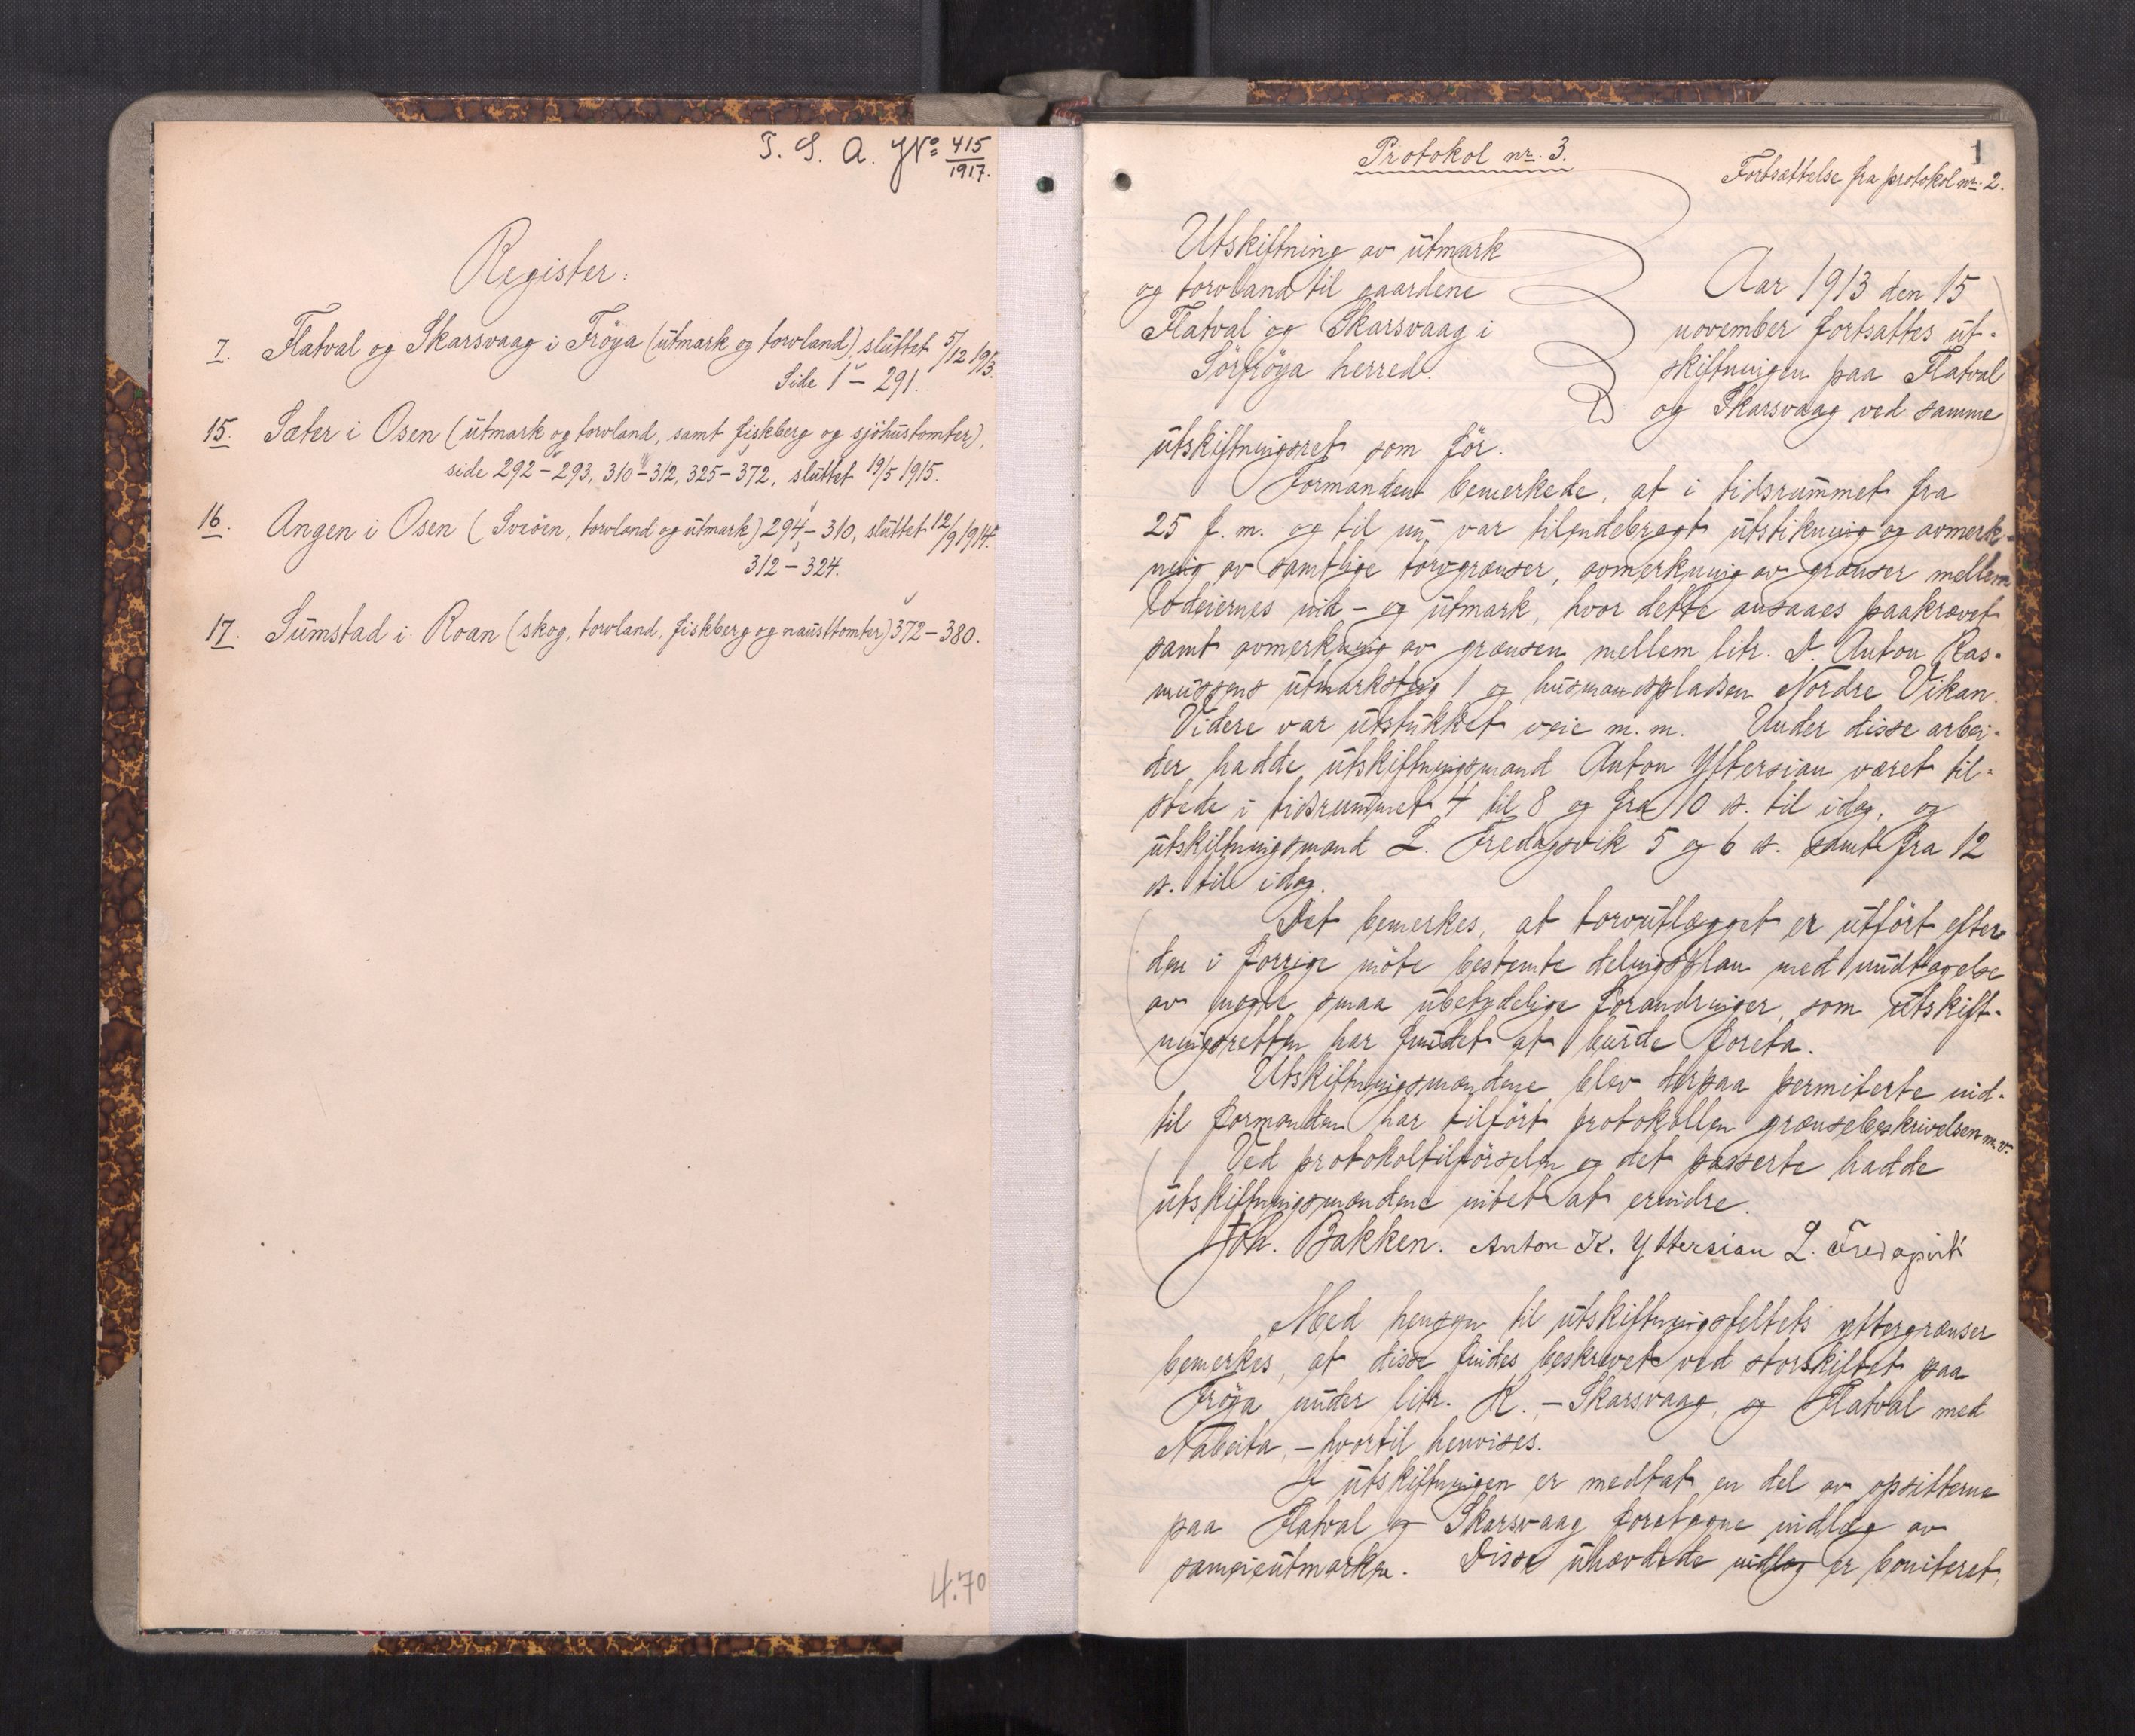 T. S. A. J№: 415/1917.
Register:
7. Flatval og Skarsvaag i Fröya (utmark og torvland), sluttet 5/12 1913.
Side 1 – 291.
15. Sæter i Osen (utmark og torvland, samt fiskberg og sjöhustomter),
side 292 – 293, 310 – 312, 325 – 372, sluttet 19/5 1915.
16. Angen i Osen (Sviöen, torvland og utmark) 294 – 310, sluttet 12/9 1914.
312 – 324.
17. Sumstad i Roan (skog, torvland, fiskberg og nausttomter) 372 – 380.
4.70
1
Protokol nr. 3.
Fortsættelse fra protokol nr. 2.
Utskiftning av utmark
og torvland til gaardene
Flatval og Skarsvaag i
Sörfröya herred.
Aar 1913 den 15
november fortsattes ut-
skiftningen paa Flatval
og Skarsvaag ved samme
utskiftningsret som för.
Formanden bemerkede, at i tidsrummet fra
25 f. m. og til nu var tilendebragt utstikning og avmerk-
ning av samtlige torvgrænser, avmerkning av grænser mellem
lodeiernes ind- og utmark, hvor dette ansaaes paakrævet
samt avmerkning av grænsen mellem litr. D. Anton Ras-
mussens utmarksteig 1 og husmandspladsen Nordre Vikan.
Videre var utstukket veie m. m. Under disse arbei-
der hadde utskiftningsmand Anton Yttersian været til-
stede i tidsrummet 4 til 8 og fra 10 ds. til idag, og
utskiftningsmand L. Fredagsvik 5 og 6 ds. samt fra 12
ds. til idag.
Det bemerkes, at torvutlægget er utfört efter
den i forrige möte bestemte delingsplan med undtagelse
av nogle smaa ubetydelige forandringer, som utskift-
ningsretten har fundet at burde foreta.
Utskiftningsmændene blev derpaa permiterte ind-
til formanden har tilfört protokollen grænsebeskrivelsen m. v.
Ved protokoltilförselen og det passerte hadde
utskiftningsmændene intet at erindre.
Joh. Bakken. Anton K. Yttersian L. Fredagsvik
Med hensyn til utskiftningsfeltets yttergrænser
bemerkes, at disse findes beskrevet ved storskiftet paa
Fröya under litr. K. – Skarsvaag, og Flatval med
Nabeita, – hvortil henvises.
I utskiftningen er medtat en del av opsitterne
paa Flatval og Skarsvaag foretagne indlæg av
sameieutmarken. Disse uhævdede indlæg er boniteret,